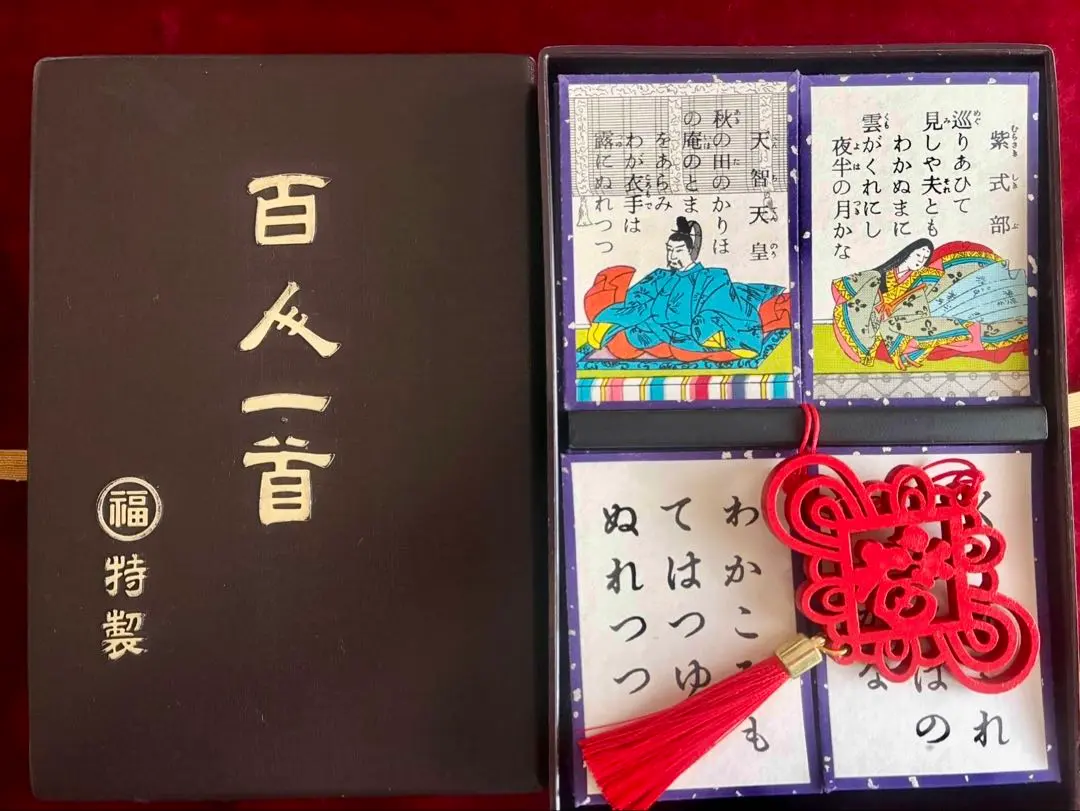 百人一首
福
特製
紫式部
巡りあひて
見しや夫とも
わかぬまに
雲がくれにし
夜半の月かな
天智天皇
秋の田のかりほ
の庵のとま
をあらみ
わが衣手は
露にぬれつつ
れ
はの
な
わかこ も
てはつゆ
ぬれつつ